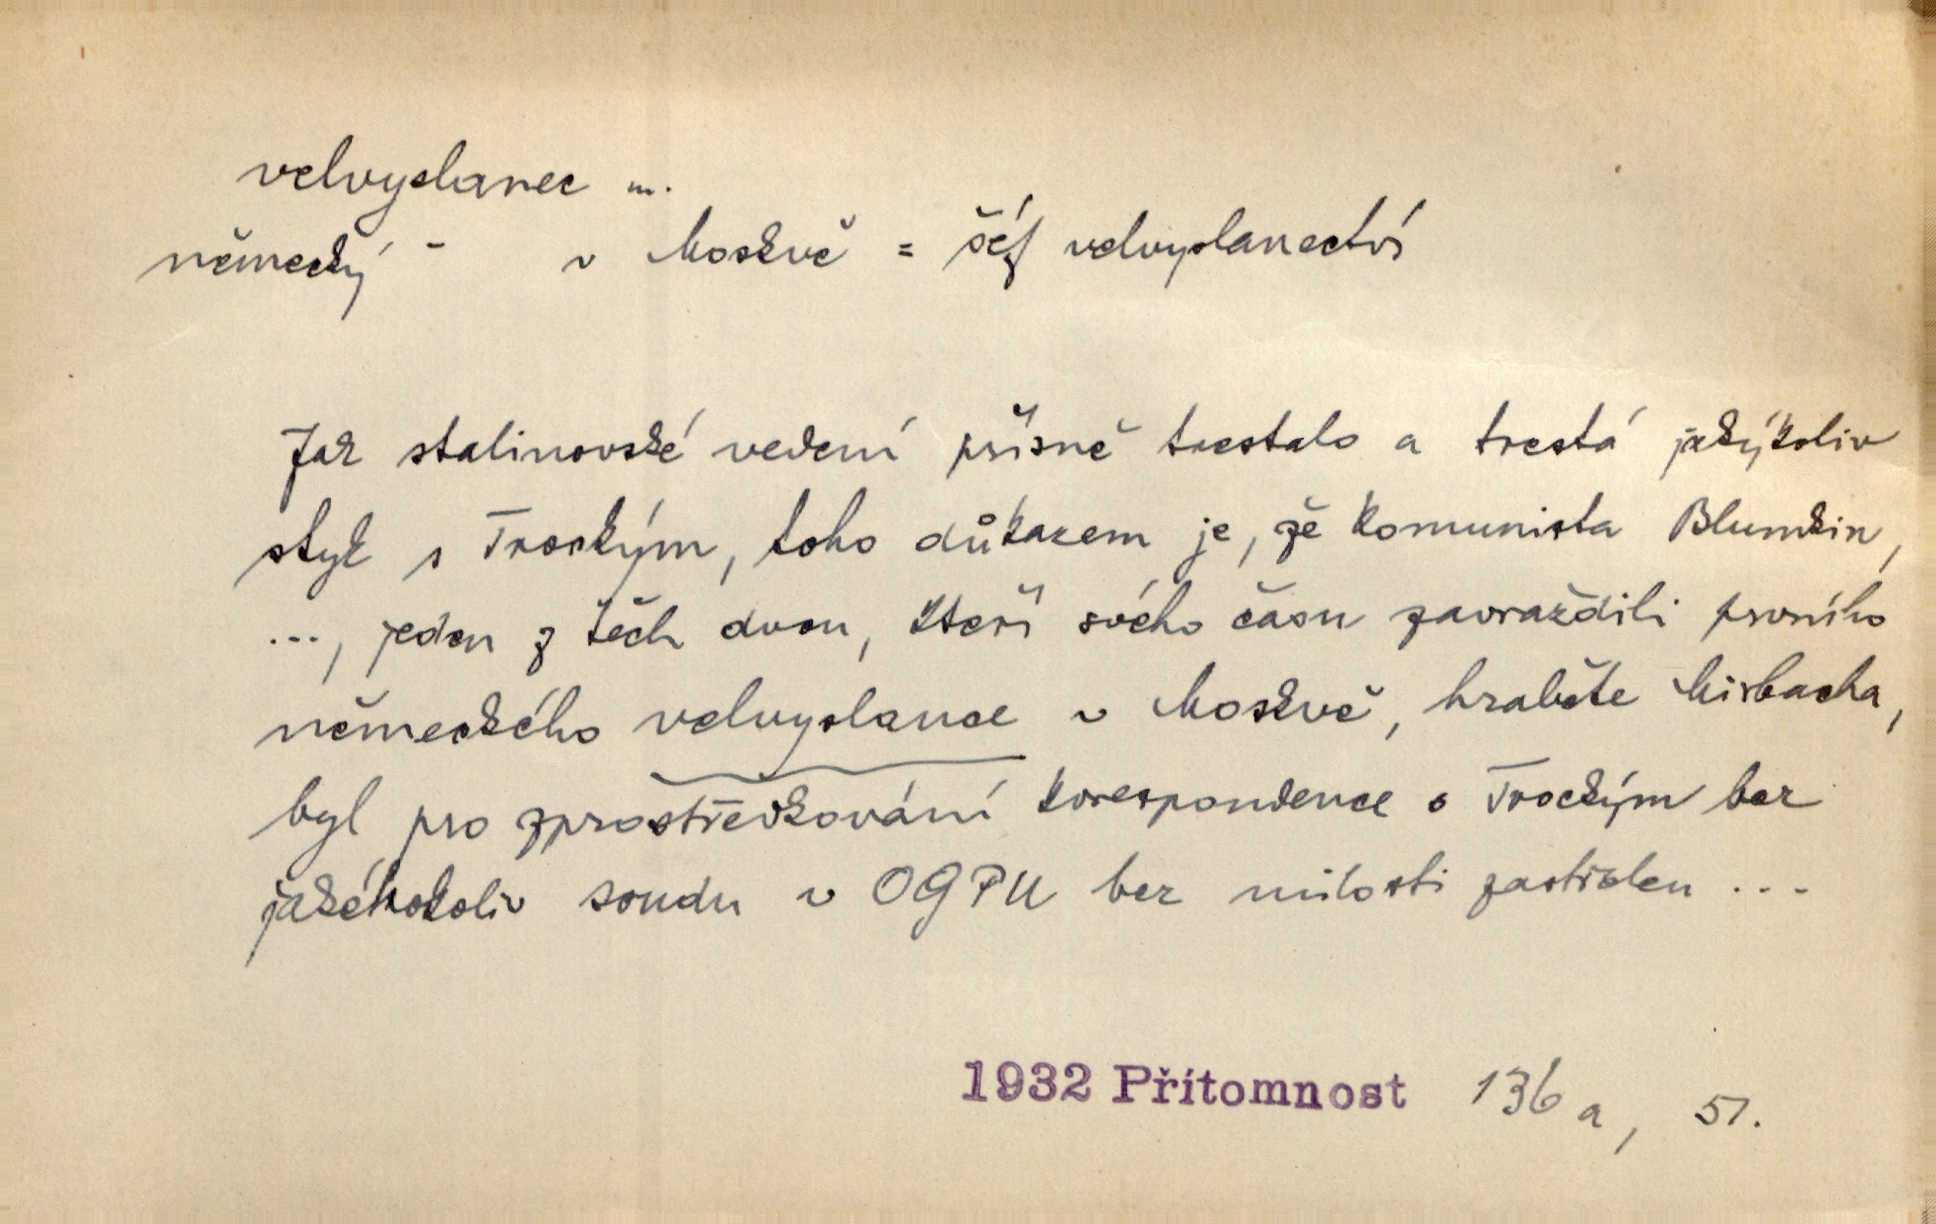 velvyslanec m.
německý - v Moskvě = šéf velvyslanectví
Jak stalinovské vedení přísně trestalo a trestá jakýkoliv
styk s Trockým, toho důkazem je, že komunista Blumkin,
..., jeden z těch dvou, kteří svého času zavraždili prvního
německého velvyslance v Moskvě, hraběte Mirbacha,
byl pro zprostředkování korespondence s Trockým bez
jakéhokoliv soudu v OGPU bez milosti zastřelen ...
1932 Přítomnost 136 a, 51.